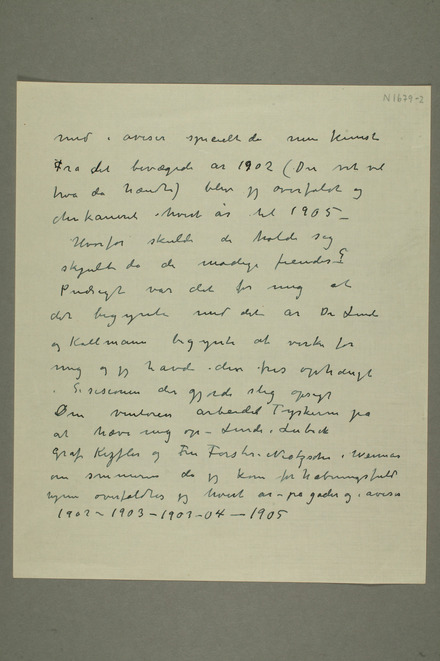 N1679-2
med i aviser specielt da min kunst
Fra det bevægede år 1902 (Du vet vel
hva da hændte) blev jeg overfaldt og
chikaneret hvert år til 1905 –
Hvorfor skulde de holde sig
skjulte da de modige fiender?
Pudsigt var det for mig at
det begynte med det år Dr Linde
og Kollmann begynte at virke for
mig og jeg havde den fris ophængt
i Secisionen der gjorde slig opsigt
Om vinteren arbeidet Tyskerne på
at hæve mig op – Linde i Lübeck
Graf Keszler og Fru Førster-Nietzsche i Weimar
om sommeren da jeg kom forhåbningsfuld
overfaldtes jeg hvert år – på gaden og i aviser
1902 – 1903 – 1903-04 – 1905